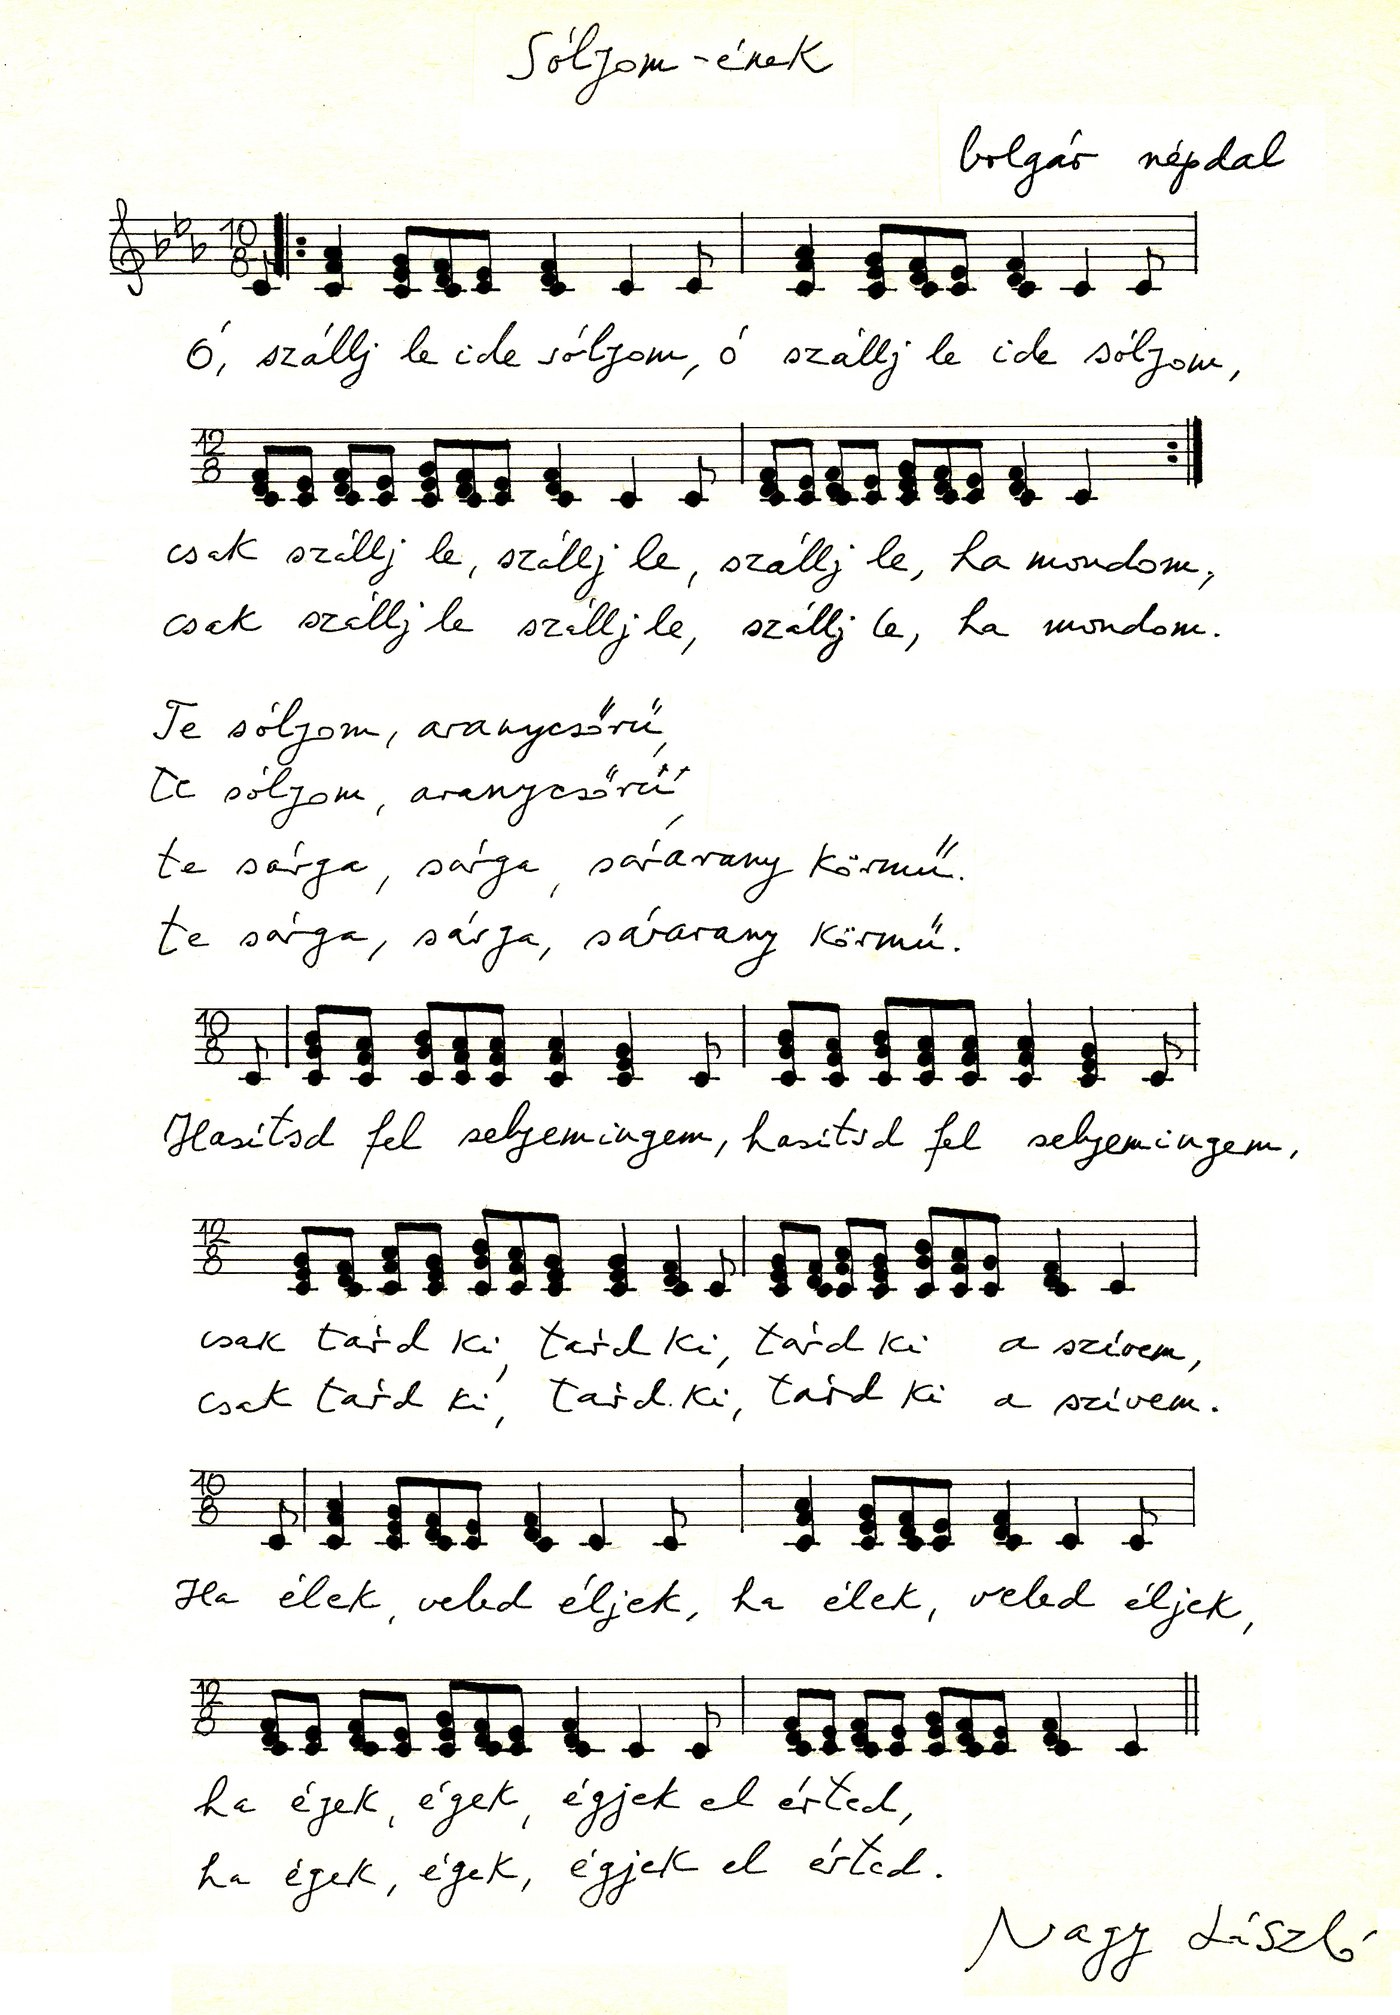 Sóljom-ének
bolgár népdal
10
8
Ó, szállj le ide sóljom, ó szállj le ide sóljom,
12
8
csak szállj le, szállj le, szállj le, ha mondom,
csak szállj le szállj le, szállj le, ha mondom.
Te sóljom, aranycsőrű,
te sóljom, aranycsőrű,
te sárga, sárga, sárarany körmű.
te sárga, sárga, sárarany körmű.
10
8
Hasítsd fel selyemingem, hasítsd fel selyemingem,
12
8
csak tárd ki, tárd ki, tárd ki a szívem,
csak tárd ki, tárd ki, tárd ki a szívem.
10
8
Ha élek, veled éljek, ha élek, veled éljek,
12
8
ha égek, égek, égjek el érted,
ha égek, égek, égjek el érted.
Nagy László